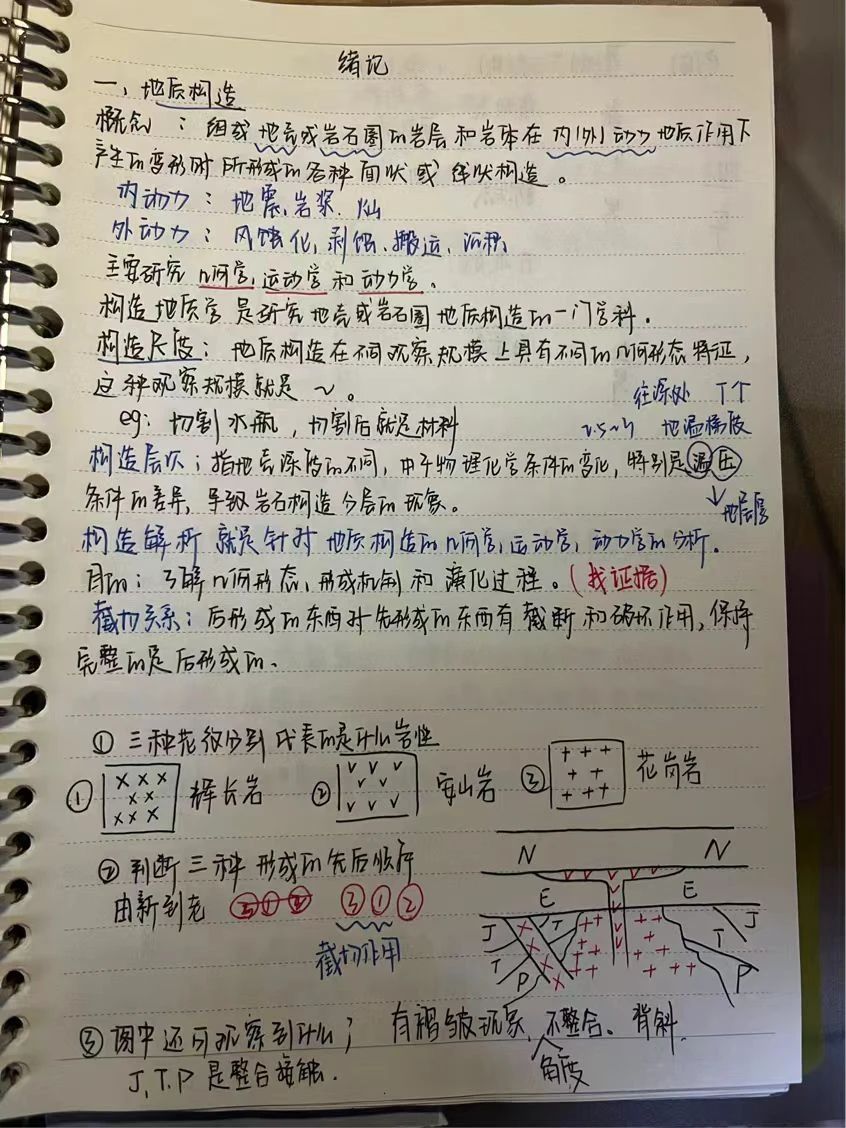 绪记
一、地质构造
概念：组成地壳或岩石圈的岩层和岩体在内(外)动力地质作用下
产生的变形时所形成的各种面状或线状构造。
内动力：地震、岩浆、
外动力：风蚀化，剥蚀、搬运、沉积，
主要研究几何学，运动学和动力学。
构造地质学是研究地壳或岩石圈地质构造的一门学科。
构造尺度：地质构造在不同观察规模上具有不同的几何形态特征，
这种观察规模就是～。
往深处 T个
eg：切割水瓶，切割后就是材料
地温梯度
构造层次；指地壳深度的不同，由于物理化学条件的变化，特别是温压
条件的差异，导致岩石构造分层的现象。
↓地层厚
构造解析就是针对地质构造的几何学，运动学，动力学的分析。
目的：了解几何形态、形成机制和演化过程。(找证据)
截切关系：后形成的东西对先形成的东西有截断和破坏作用，保持
完整的是后形成的、
① 三种花纹分别代表的是什么岩性
① ××× ×× ××× 辉长岩 ② v v v v v v v v 安山岩 ③ +++ ++ +++ 花岗岩
② 判断三种形成的先后顺序
由新到老 ③①② ③①②
截切作用
N N
E E
J T J
T P T P
③ 图中还可观察到什么；有褶皱现象、不整合、背斜、
角度
J，T，P是整合接触．